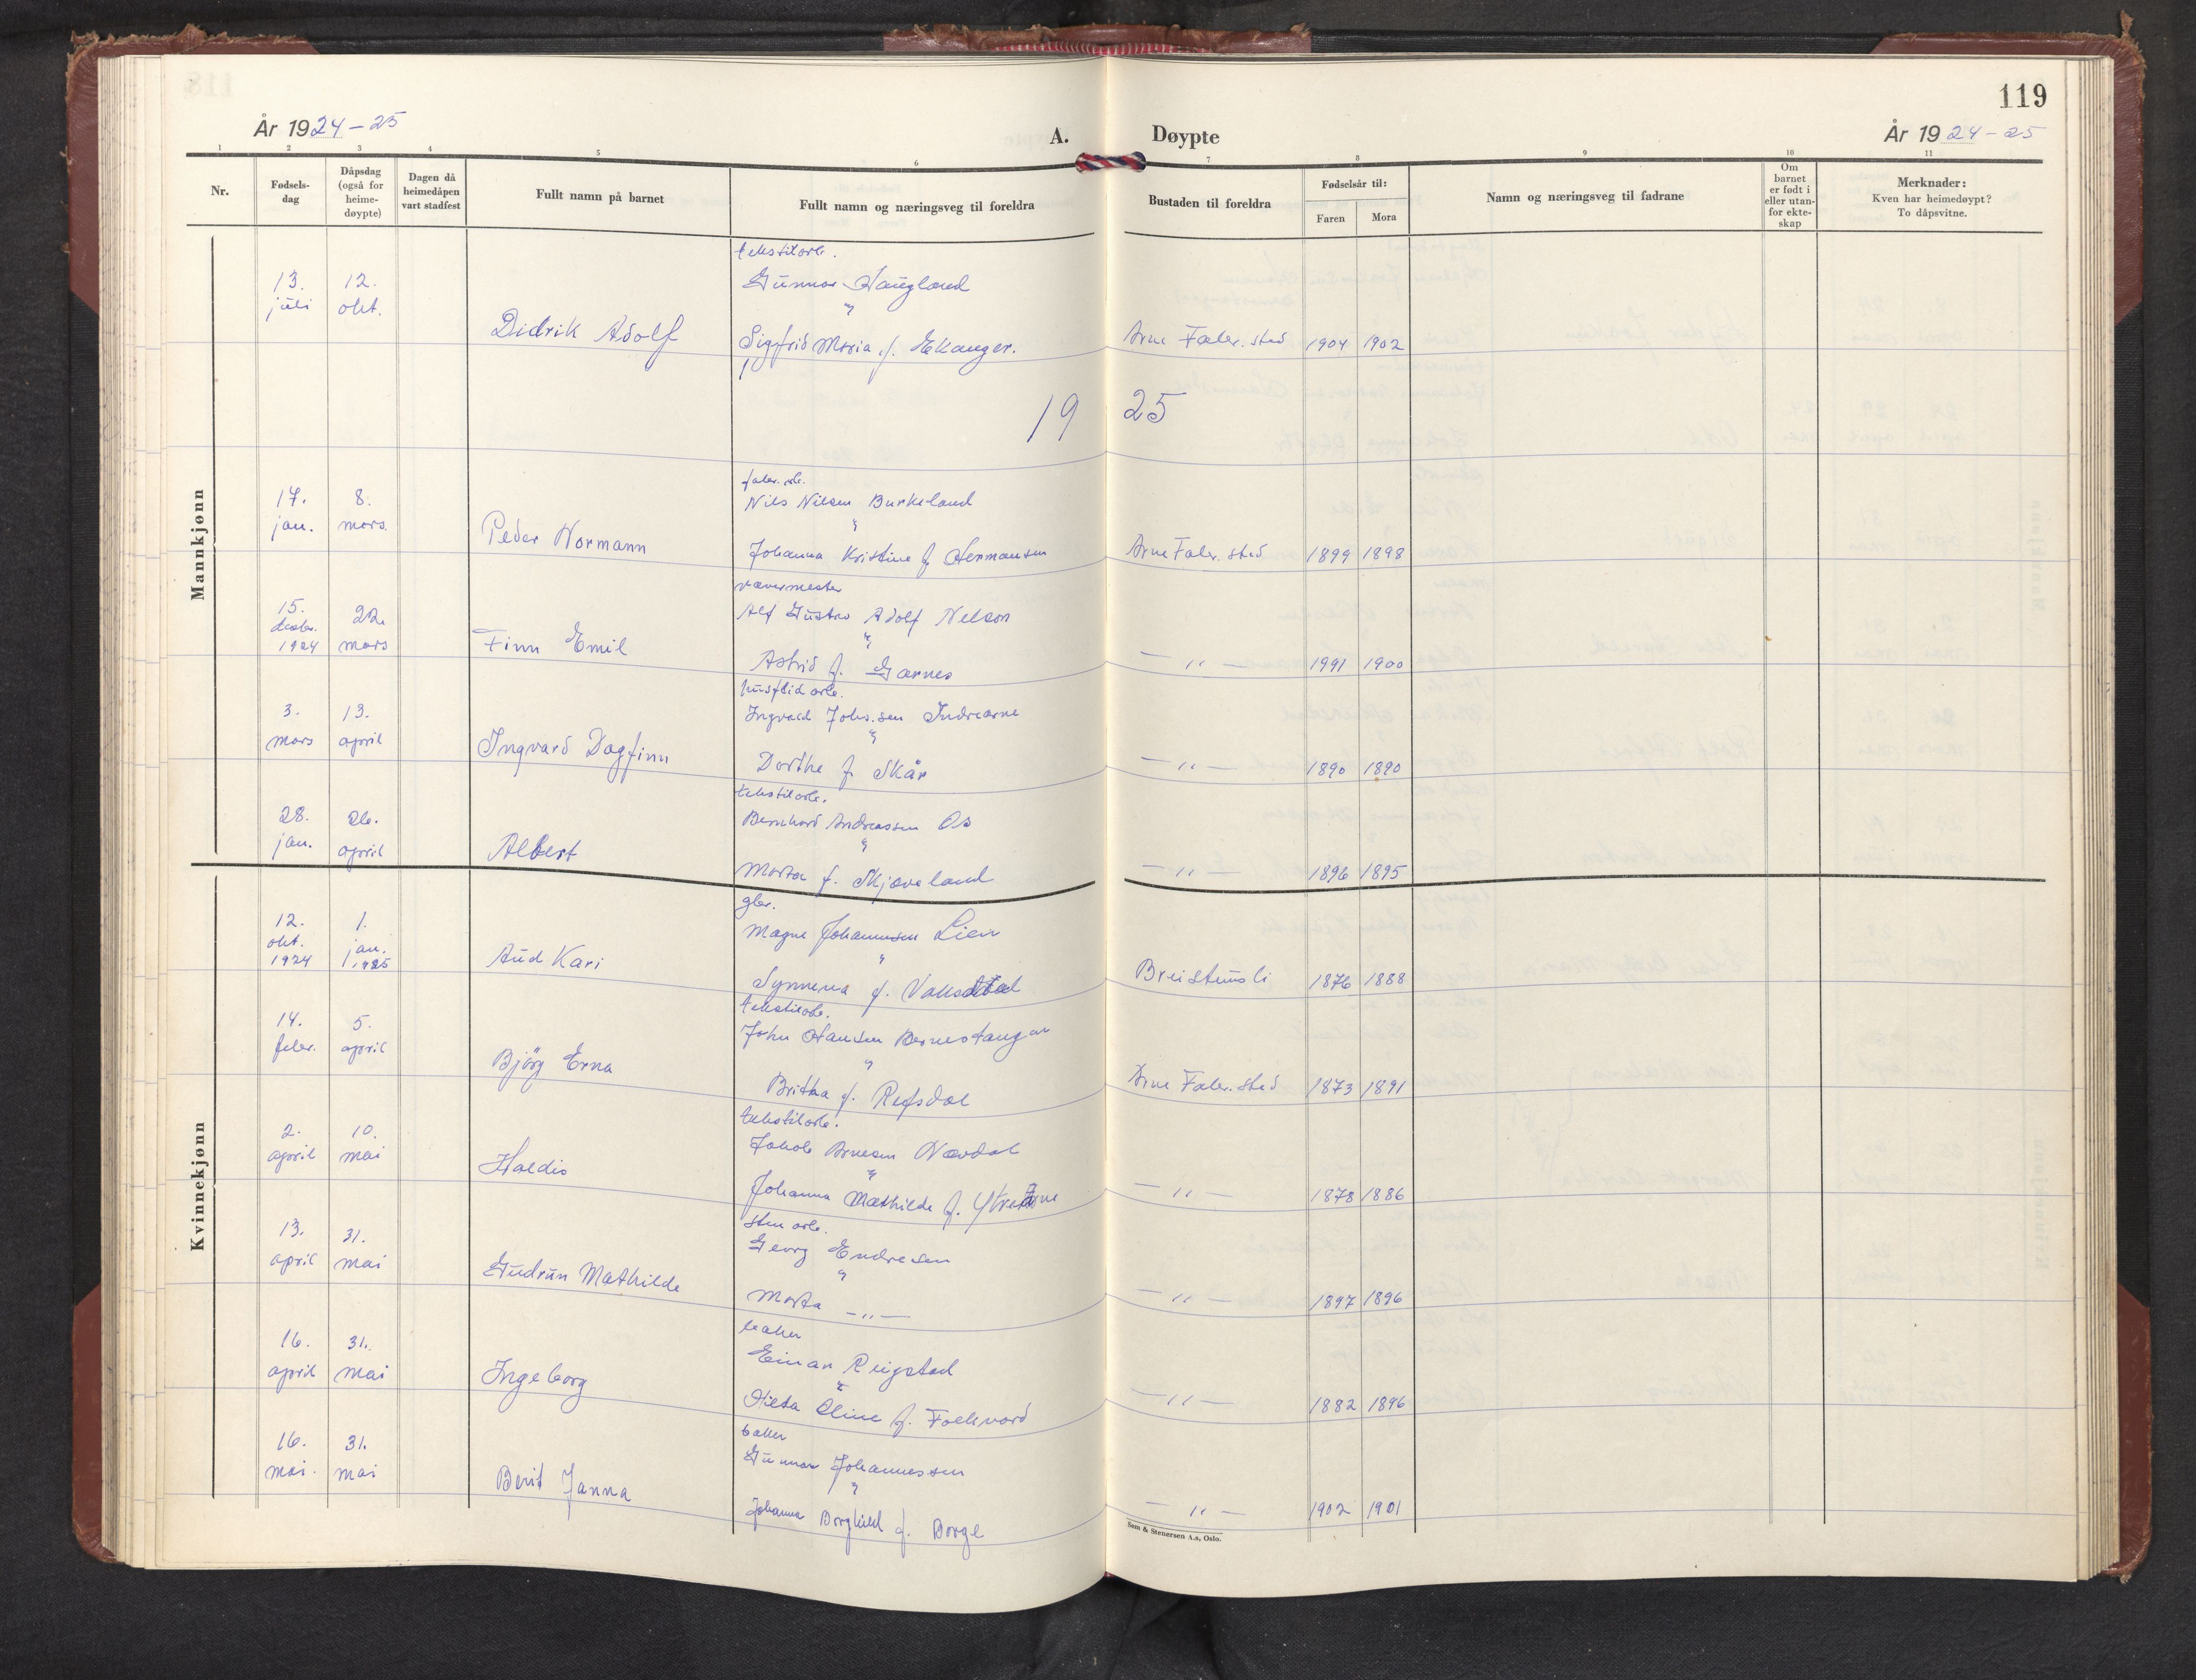 119
År 1924–25
A. Døypte
År 1924–25
1 2 3 4 5 6 7 8 9 10 11
Nr.
Fødsels-
dag
Dåpsdag
(også for
heime-
døypte)
Dagen då
heimedåpen
vart stadfest
Fullt namn på barnet
Fullt namn og næringsveg til foreldra
Bustaden til foreldra
Fødselsår til:
Faren Mora
Namn og næringsveg til fadrane
Om
barnet
er født i
eller utan-
for ekte-
skap
Merknader:
Kven har heimedøypt?
To dåpsvitne.
Mankjønn
tekstilarb.
13. juli
12. okt.
Didrik Adolf
Gunnar Haugland
"
Sigfrid Maria f. Ekanger.
Arne Fabr. sted 1904 1902
19 25
fabr. arb.
17. jan.
8. mars.
Peder Normann
Nils Nilsen Burkeland
"
Johanna Kristine f. Hermansen
Arne Fabr. sted 1899 1898
vævermester
15. desbr. 1924
22. mars
Finn Emil
Alf Gustav Adolf Nelson
"
Astrid f. Garnes
— " — 1991 1900
husflid arb.
3. mars
13. april
Ingvard Dagfinn
Ingvald Johs.sen Indrearne
"
Dorthe f. Skår
— " — 1890 1890
tekstilarb.
28. jan.
26. april
Albert
Bernhard Andreassen Os
"
Marta f. Skjæveland
— " — 1896 1895
Kvinnekjønn
gbr.
12. okt. 1924
1. jan. 1925
Aud Kari
Magne Johannesen Lien
"
Synneva f. Vaksdal
Breisteinsli 1876 1888
tekstilarb.
14. febr.
5. april
Bjørg Erna
John Hansen Bernestangen
"
Britha f. Refsdal
Arne Fabr. sted 1873 1891
tekstilarb.
2. april
10. mai
Haldis
Jakob Arnesen Nævdal
"
Johanna Mathilde f. Ytre Arne
— " — 1878 1886
sten arb.
13. april
31. mai
Gudrun Mathilde
Georg Endresen
"
Marta — " —
— " — 1897 1896
baker
16. april
31. mai
Ingeborg
Einar Reigstad
"
Hilda Oline f. Folkvord
— " — 1882 1896
baker
16. mai.
31. mai
Berit Janna
Gunnar Johannessen
"
Johanna Borghild f. Borge
— " — 1902 1901
Sem & Stenersen A.s, Oslo.